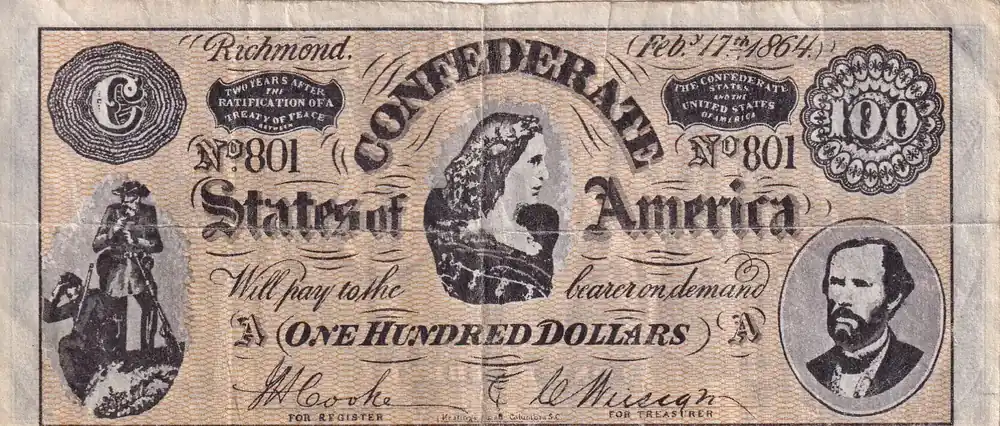 Richmond.
Feb.y 17th 1864.
C
TWO YEARS AFTER
THE
RATIFICATION OF A
TREATY OF PEACE
BETWEEN
THE CONFEDERATE
STATES
AND THE
UNITED STATES
OF AMERICA
100
CONFEDERATE
No. 801
No 801
States of America
Will pay to the bearer on demand
A (ONE HUNDRED DOLLARS) A
Cooke
FOR REGISTER
Columbia S.C.
FOR TREASURER